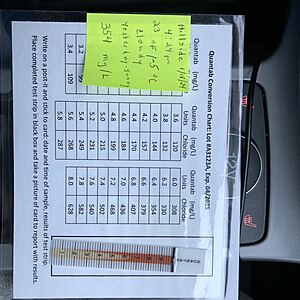 Quantab Conversion Chart: Lot RA3123A, Exp. 04/2025
Quantab (mg/L) Quantab (mg/L) Quantab (mg/L)
Units Chloride Units Chloride
3.6 120 6.0 308
3.8 132 6.2 330
4.0 144 6.4 354
4.2 157 6.6 379
4.4 170 6.8 407
4.6 184 7.0 436
4.8 199 7.2 468
5.0 215 7.4 502
5.2 231 7.6 540
3.2 99 5.4 249 7.8 582
3.4 109 5.6 268 8.0 628
5.8 287
Write on a post-it and stick to card: date and time of sample, results of test strip.
Place completed test strip in black box and take a picture of card to report with results.
Hillside
4:24pm
23 °F/-5 °C
Cloudy
Yesterday: sunny
354 mg/L